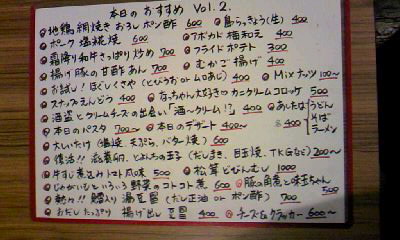 本日のおすすめ Vol.2.
◎地鶏網焼き おろしポン酢 600 ◎島らっきょう(生) 400
◎ポーク塩糀焼 600 ◎アボカド 梅和え 400
◎霜降り和牛さっぱり炒め 700 ◎フライドポテト 300
◎揚げ豚の甘酢あん 700 ◎むかご揚げ 400
◎お試し!ほぐしくさや(とびうお or ムロあじ) 400 ◎Mixナッツ 100〜
◎スナップえんどう 400 ◎なっちゃん大好き♡カニクリームコロッケ 500
◎酒盗とクリームチーズの出会い「酒〜クリーム!?」 400 ◎あしたばうどん
◎本日のパスタ 700〜 ◎本日のデザート 400〜 各400 そば ラーメン
◎大しいたけ(塩焼 天ぷら バター焼) 600
◎復活!! 滋養卵、とよんちの玉子(だしまき、目玉焼、T.K.Gなど) 200〜
◎牛すじ煮込みトマト風味 500 ◎松茸どびんむし 1000
◎じゃがいもといろいろ野菜のコトコト煮 600 ◎豚の角煮と味玉ちゃん 700
◎熱々!! 鱈入り湯豆腐(だし正油 or ポン酢) 500
◎おだしたっぷり 揚げ出し豆腐 400 ◎チーズ&クラッカー 600〜